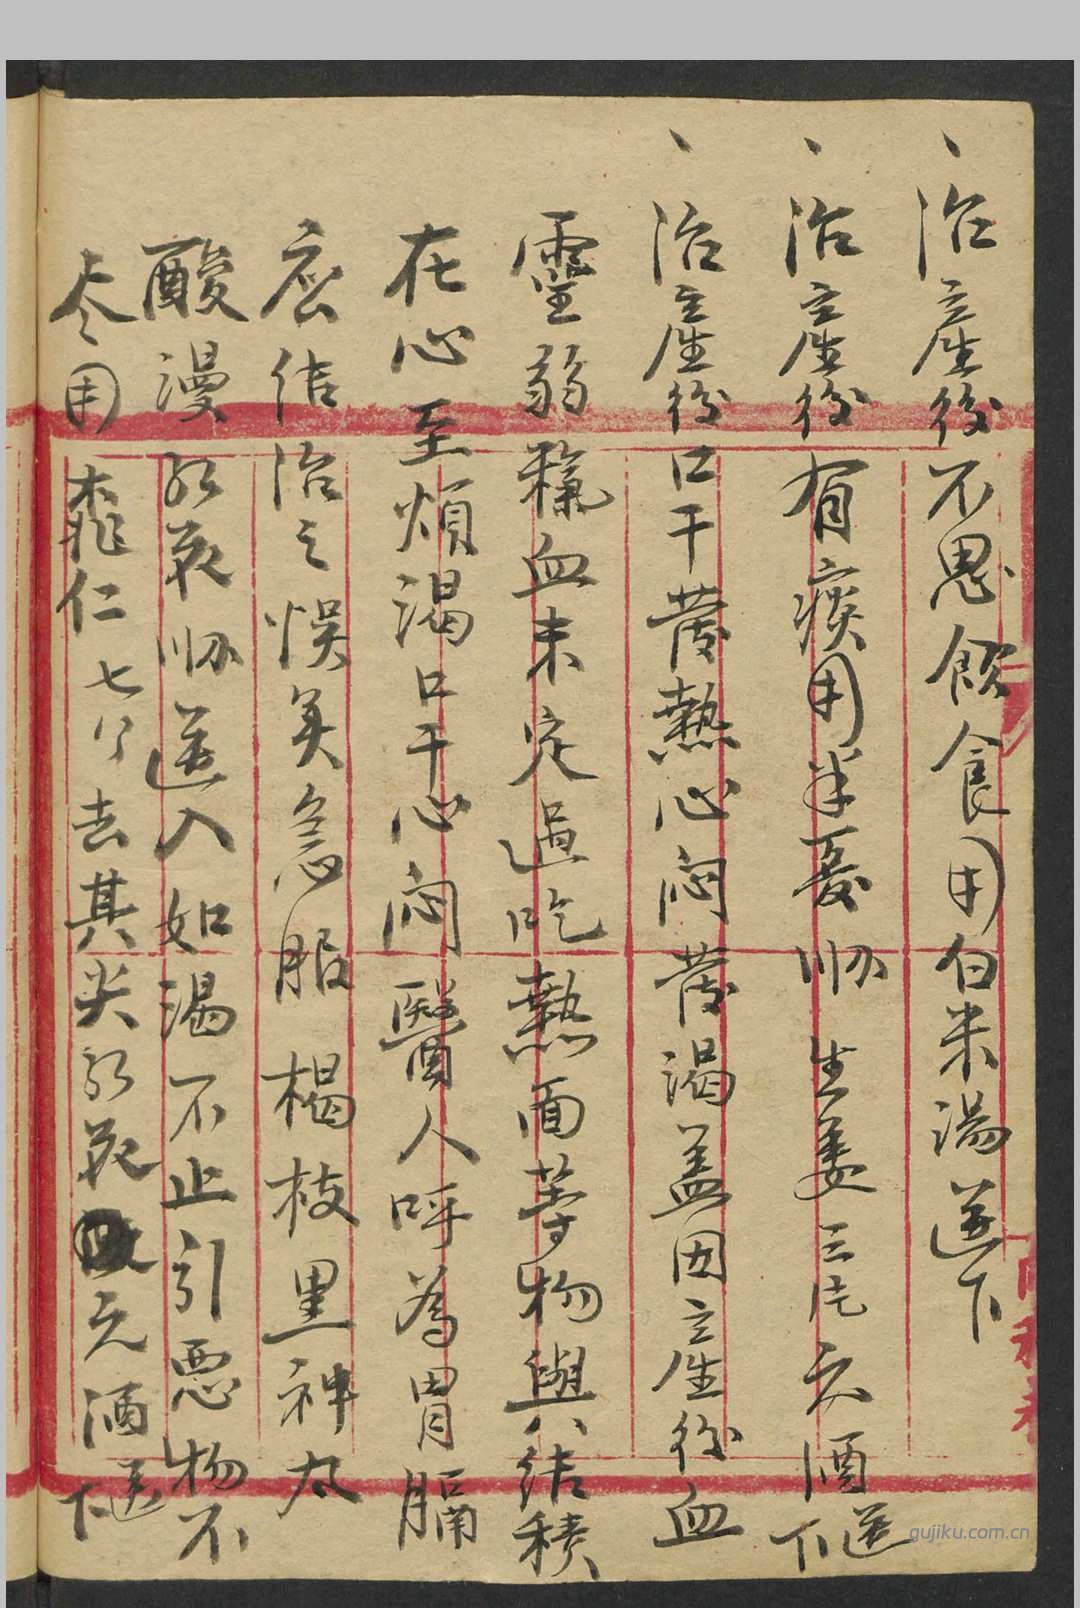 、治產後不思飲食用白米湯送下
、治產後有痰用半夏 生姜三片 酒送下
、治產後口干發熱心悶發渴蓋因產後血
靈弱 血未定過吃熱面等物與結積
在心至煩渴口干心悶醫人呼為胃膈
結治之悞矣急服 枝黑神丸
酸漫紅花 送入如渴不止引惡物不
用桃仁七個去其尖紅花 元酒送下
gujiku.com.cn